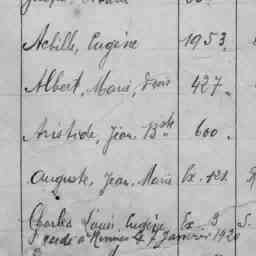 Achille, Eugène 1953.
Albert, Marie, 427.
Aristide, Jean Bte 600.
Auguste, Jean, Marie Ex. 121.
Charles Louis, Eugène, Ex. 3 S.
à Rennes le 7 Janvier 1920